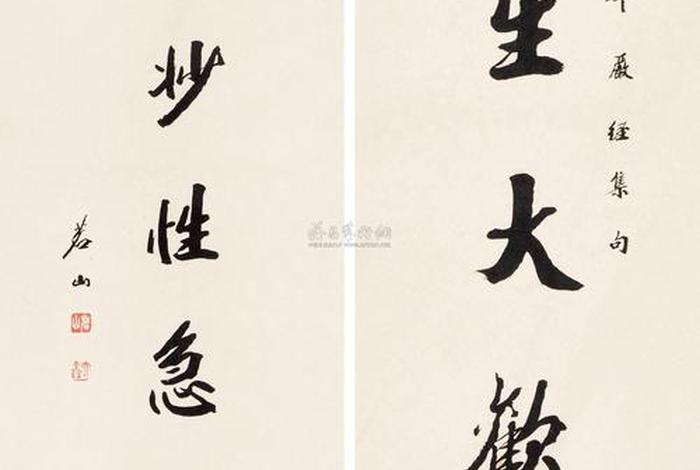 嚴經集句
生大歡
妙性急
若山